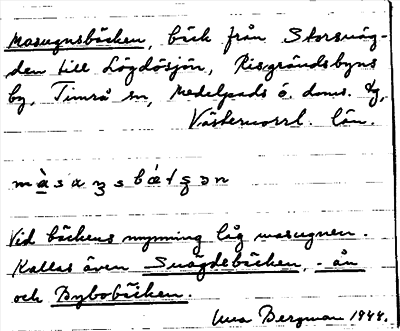 Masugnsbäcken, bäck från Storsväg-
den till Lögdösjön, Risgrändsbyns
by, Timrå sn, Medelpads ö. doms. tg,
Västernorrl. län.
Vid bäckens mynning låg masugnen.
Kallas även Svägdebäcken, -ån
och Bybobäcken.
Bergman 1944.